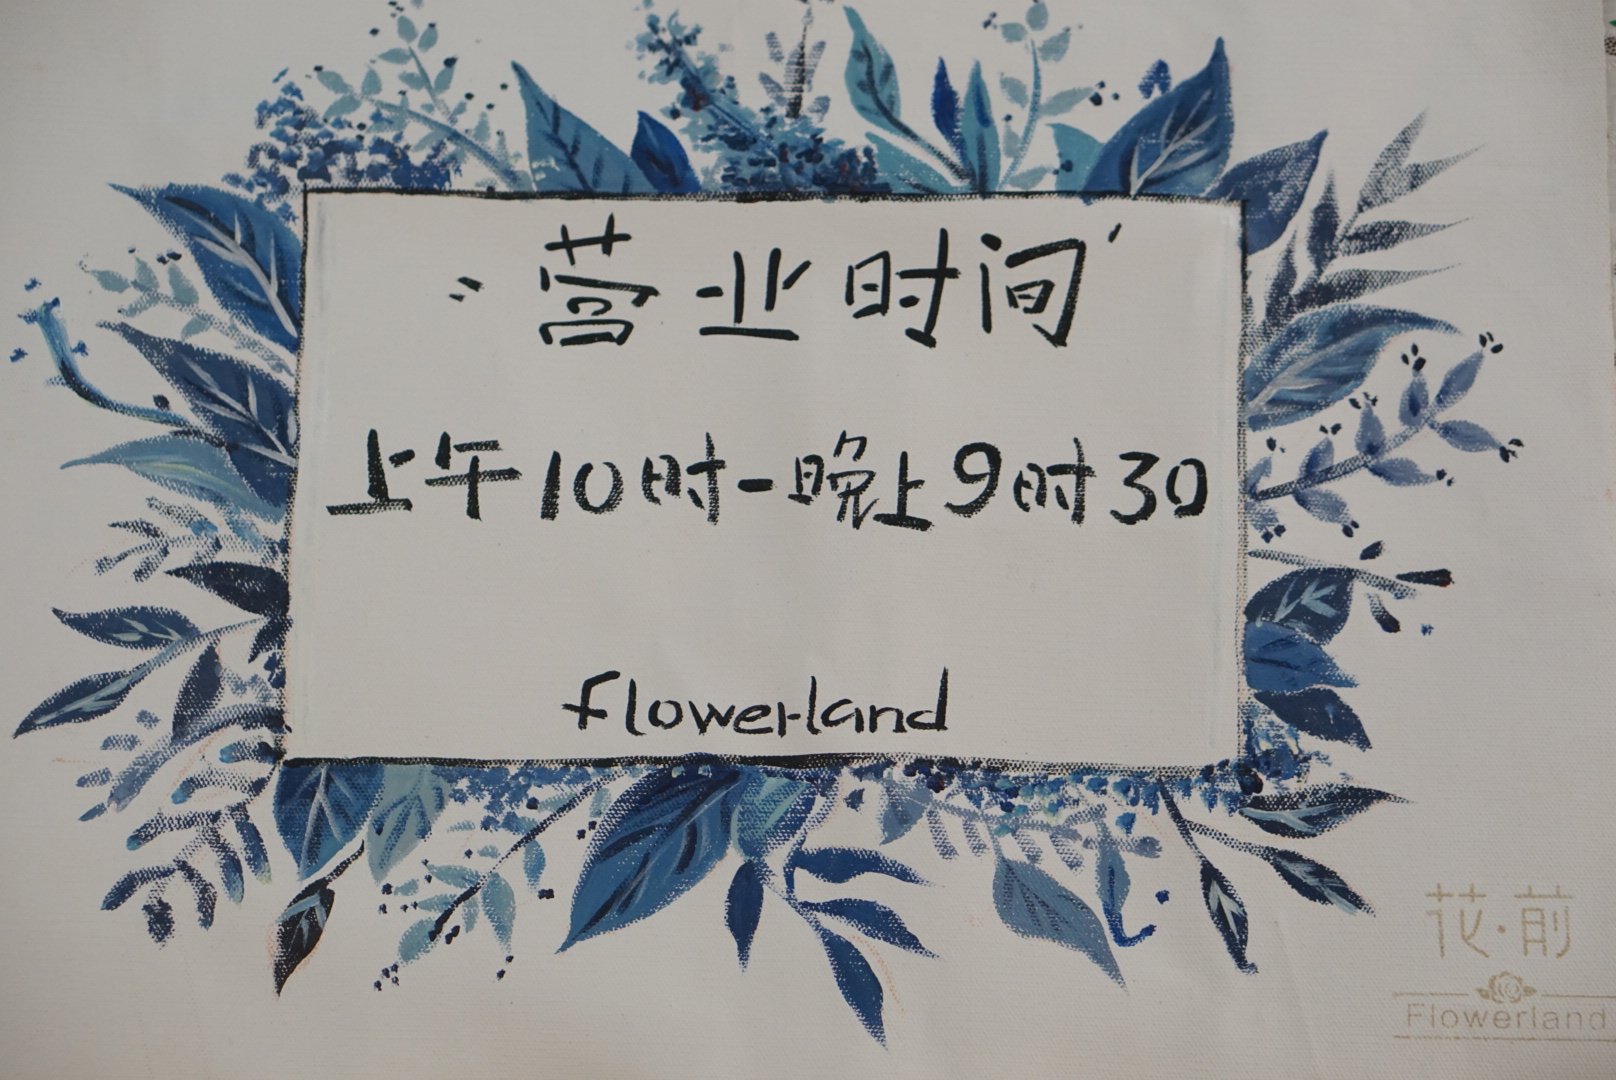 "营业时间"
上午10时-晚上9时30
flowerland
花·前
Flowerland